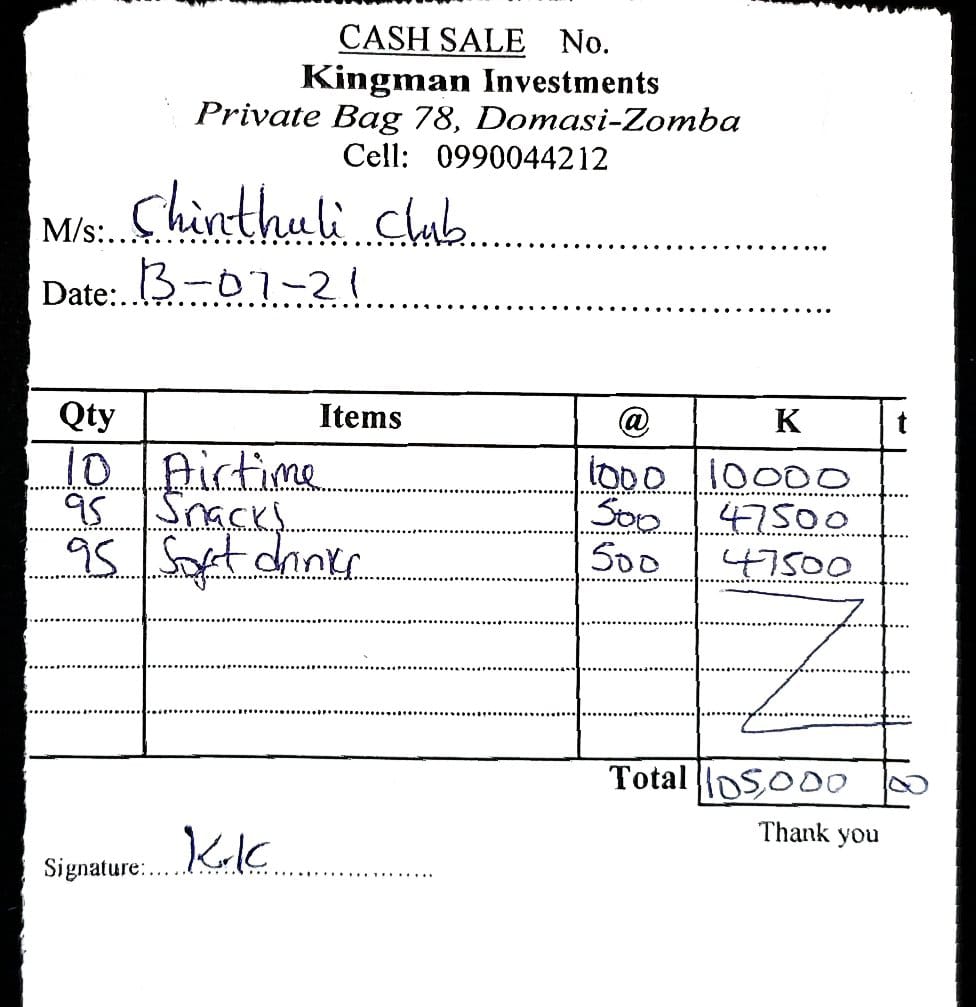 CASH SALE No.
Kingman Investments
Private Bag 78, Domasi-Zomba
Cell: 0990044212
M/s: Chinthuli Club
Date: 13-07-21
Qty Items @ K t
10 Airtime 1000 10000
95 Snacks 500 47500
95 Soft drinks 500 47500
Total 105,000 00
Thank you
Signature: K.K